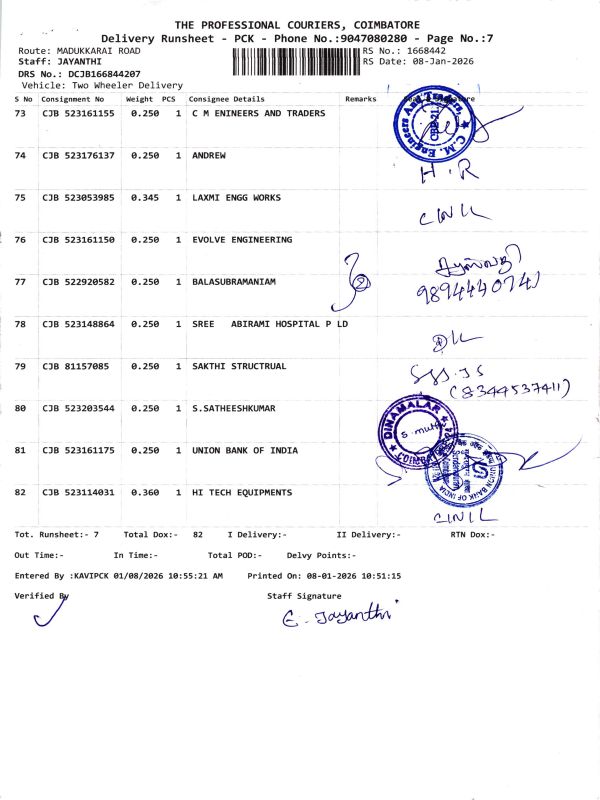 THE PROFESSIONAL COURIERS, COIMBATORE
Delivery Runsheet - PCK - Phone No.:9047080280 - Page No.:7
Route: MADUKKARAI ROAD RS No.: 1668442
Staff: JAYANTHI RS Date: 08-Jan-2026
DRS No.: DCJB166844207
Vehicle: Two Wheeler Delivery
S No Consignment No Weight PCS Consignee Details Remarks
73 CJB 523161155 0.250 1 C M ENINEERS AND TRADERS
C.M. Engineers And Traders
74 CJB 523176137 0.250 1 ANDREW
H.R
75 CJB 523053985 0.345 1 LAXMI ENGG WORKS
76 CJB 523161150 0.250 1 EVOLVE ENGINEERING
77 CJB 522920582 0.250 1 BALASUBRAMANIAM
78 CJB 523148864 0.250 1 SREE ABIRAMI HOSPITAL P LD
79 CJB 81157085 0.250 1 SAKTHI STRUCTRUAL
(8344537411)
80 CJB 523203544 0.250 1 S.SATHEESHKUMAR
DINAMALAR
81 CJB 523161175 0.250 1 UNION BANK OF INDIA
UNION BANK OF INDIA
82 CJB 523114031 0.360 1 HI TECH EQUIPMENTS
Tot. Runsheet:- 7 Total Dox:- 82 I Delivery:- II Delivery:- RTN Dox:-
Out Time:- In Time:- Total POD:- Delvy Points:-
Entered By :KAVIPCK 01/08/2026 10:55:21 AM Printed On: 08-01-2026 10:51:15
Verified By Staff Signature
E. Jayanthi